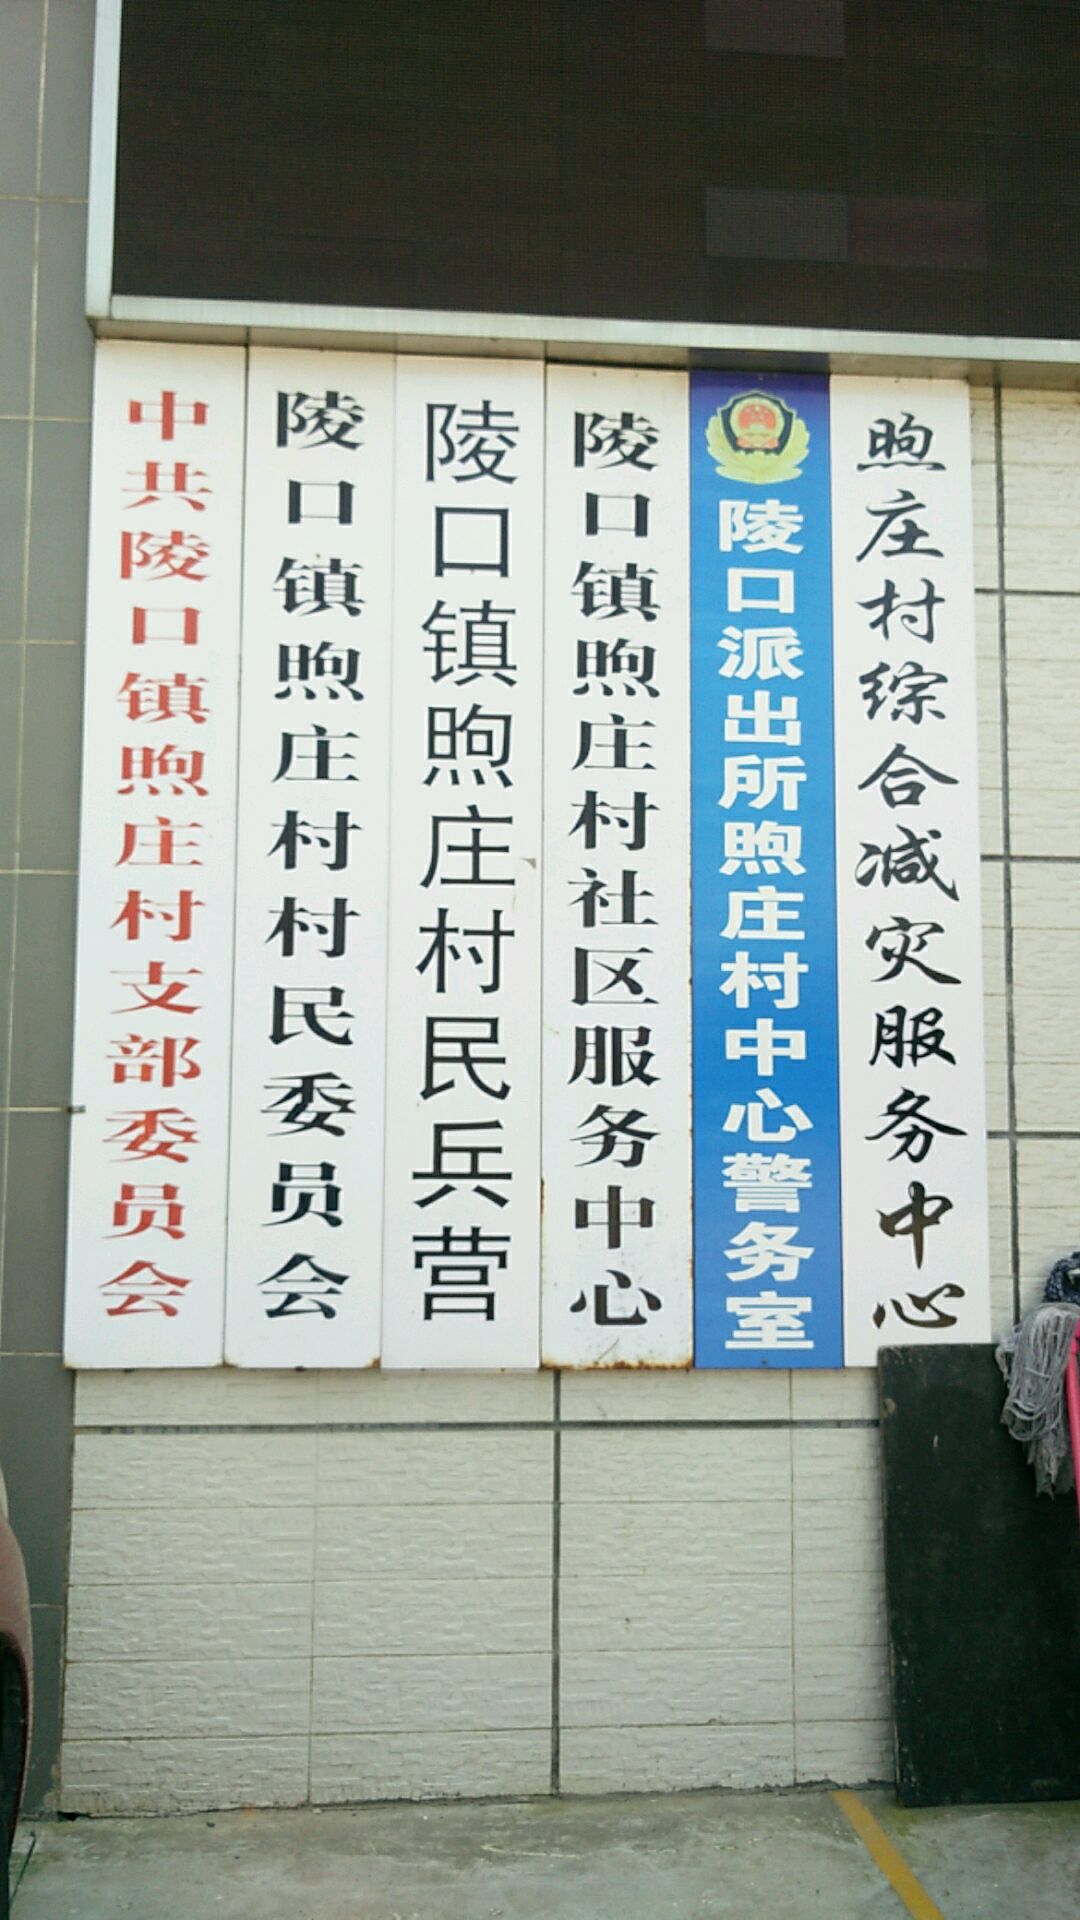 中共陵口镇煦庄村支部委员会
陵口镇煦庄村村民委员会
陵口镇煦庄村民兵营
陵口镇煦庄村社区服务中心
陵口派出所煦庄村中心警务室
煦庄村综合减灾服务中心